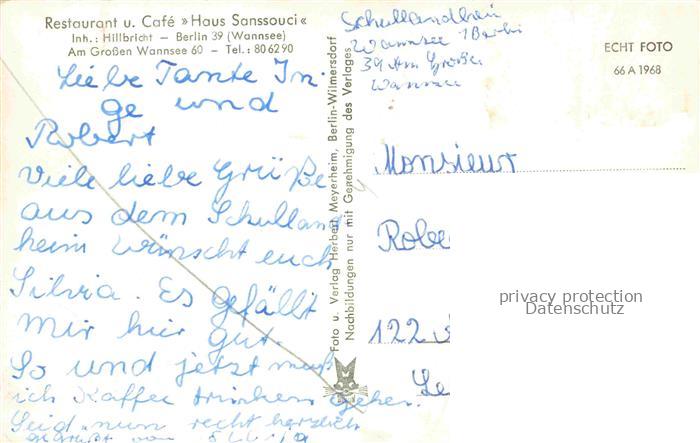 Restaurant u. Café »Haus Sanssouci«
Inh.: Hillbricht — Berlin 39 (Wannsee)
Am Großen Wannsee 60 - Tel.: 80 62 90
Liebe Tante In-
ge und
Robert
Viele liebe Grüße
aus dem Schulland
heim wünscht euch
Silvia. Es gefällt
mir hier gut.
So und jetzt muß
ich Kaffee trinken gehen.
Seid nun recht herzlich
gegrüßt von Silvia
Foto u. Verlag Herbert Meyerheim, Berlin-Wilmersdorf
Nachbildungen nur mit Genehmigung des Verlages
Schullandheim
Wannsee 1 Berlin
39 Am Großen
Wannsee
ECHT FOTO
66 A 1968
Monsieur
Robe
122
Le
privacy protection
Datenschutz